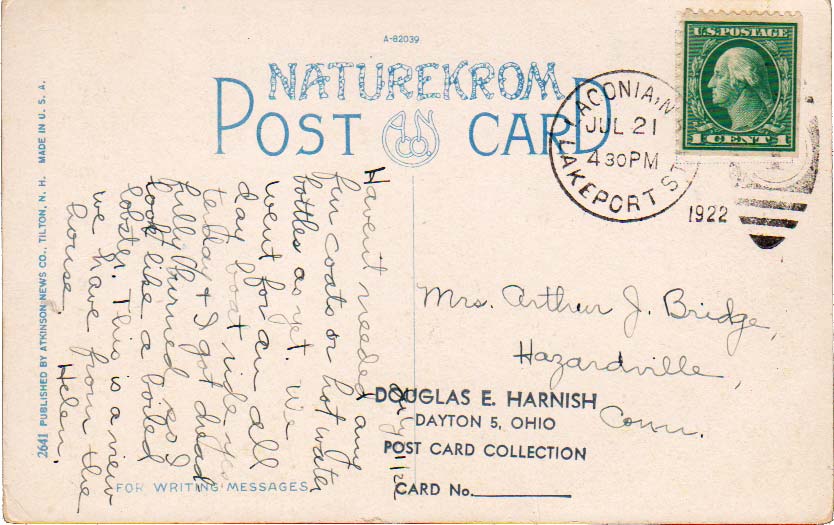 A-82039
NATUREKROM
POST CARD
A.N. CO.
LACONIA, N.
JUL 21
4 30 PM
LAKEPORT STA
1922
U.S. POSTAGE
1 CENT 1
2641 PUBLISHED BY ATKINSON NEWS CO., TILTON, N. H. MADE IN U. S. A.
July
Havent needed any
fur coats or hot water
bottles as yet. We
went for an all
day boat ride yes
terday & I got dread
fully burned so I
look like a boiled
lobster. This is a view
we have from the
house.
Helen.
FOR WRITING MESSAGES
Mrs. Arthur J. Bridge,
Hazardville,
Conn.
DOUGLAS E. HARNISH
DAYTON 5, OHIO
POST CARD COLLECTION
CARD No.